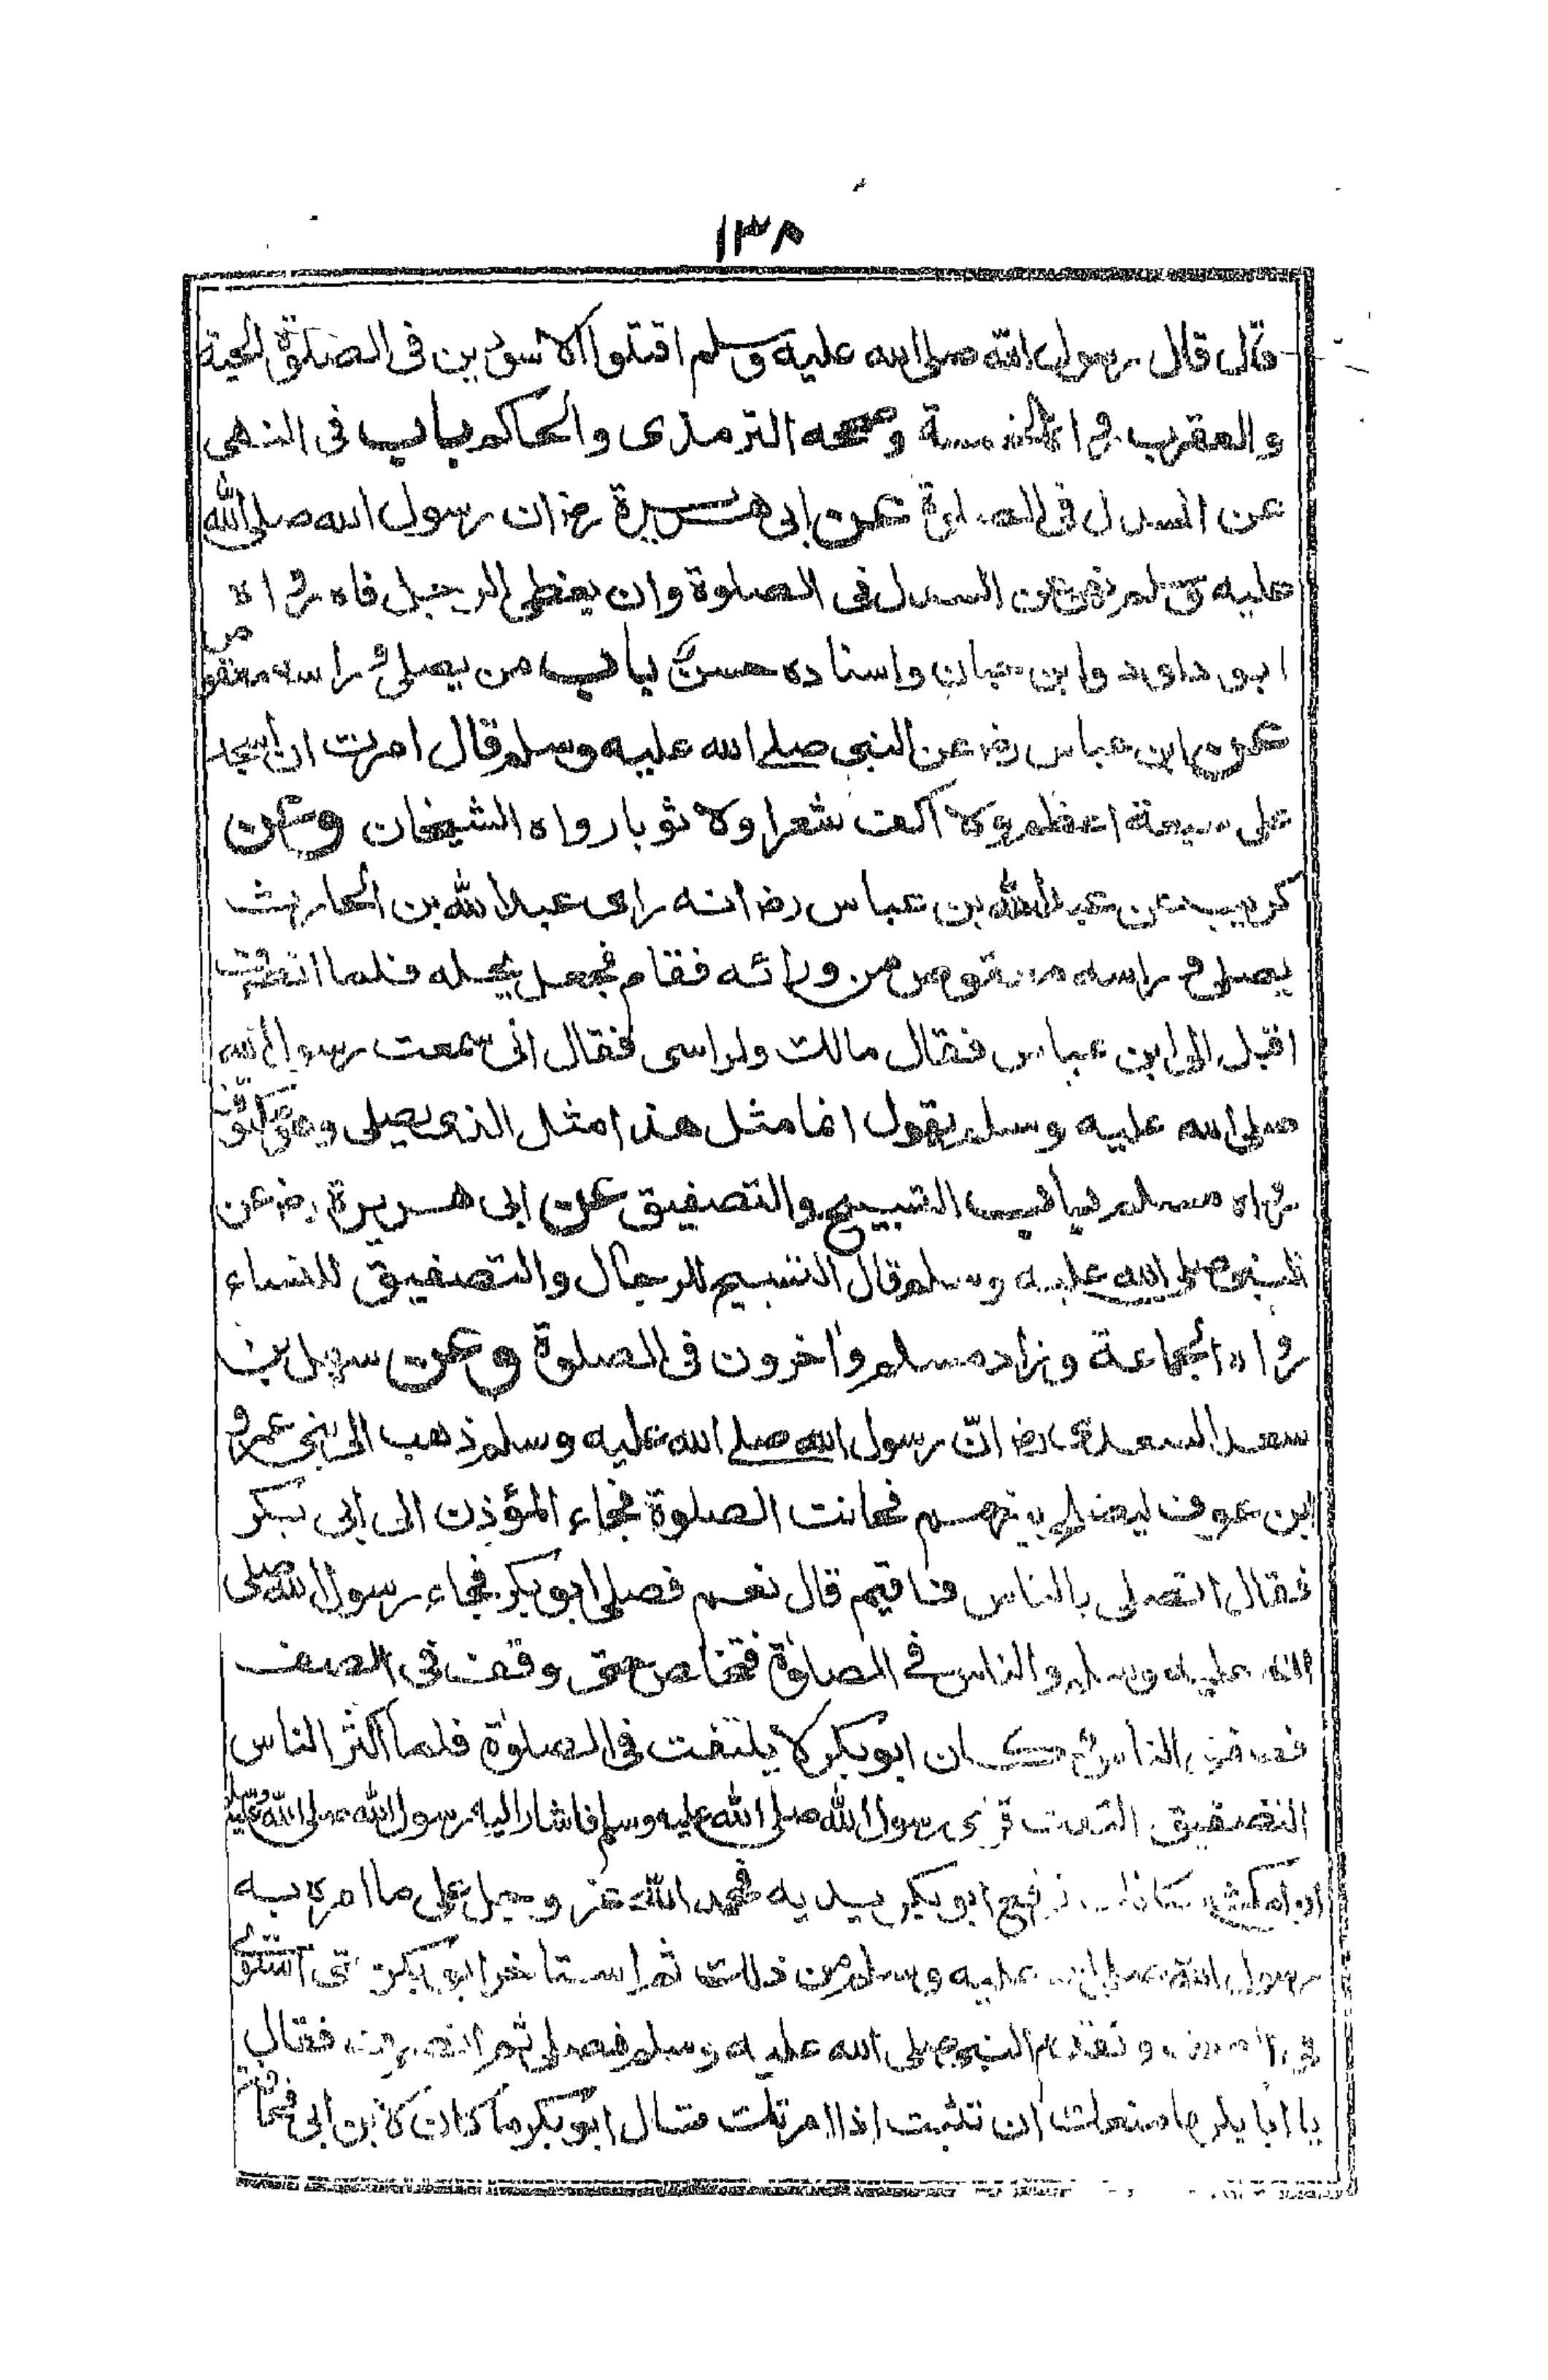 ١٣٨
قال قال رسول الله صلى الله عليه وسلم اقتلوا الاسودين فى الصلوة الحية
والعقرب رواه الخمسة وصححه الترمذى والحاكم باب فى النهى
عن السدل فى الصلوة عن ابى هريرة رض ان رسول الله صلى الله
عليه وسلم نهى عن السدل فى الصلوة وان يغطى الرجل فاه رواه
ابو داود وابن حبان واسناده حسن باب من يصلى وراسه معقوص
عن ابن عباس رض عن النبى صلے الله عليه وسلم قال امرت ان اسجد
على سبعة اعظم ولا اكف شعرا ولا ثوبا رواه الشيخان وعن
كريب عن عبد الله بن عباس رض انه راى عبد الله بن الحارث
يصلى وراسه معقوص من ورائه فقام فجعل يحله فلما انصرف
اقبل الى ابن عباس فقال مالك ولراسى فقال انى سمعت رسول الله
صلى الله عليه وسلم يقول انما مثل هذا مثل الذى يصلى وهو مكتوف
رواه مسلم باب التسبيح والتصفيق عن ابى هريرة رض عن
النبى صلى الله عليه وسلم قال التسبيح للرجال والتصفيق للنساء
رواه الجماعة وزاد مسلم واخرون فى الصلوة وعن سهل بن
سعد الساعدى رض انّ رسول الله صلے الله عليه وسلم ذهب الى بنى عمرو
ابن عوف ليصلح بينهم فحانت الصلوة فجاء المؤذن الى ابى بكر
فقال اتصلى بالناس فاقيم قال نعم فصلى ابو بكر فجاء رسول الله صلى
الله عليه وسلم والناس فے الصلوٰة فتخلص حتى وقف فى الصف
فصفق الناس وكان ابو بكر لا يلتفت فى الصلوٰة فلما اكثر الناس
التصفيق التفت فراى رسول الله صلى الله عليه وسلم فاشار اليه رسول الله صلى الله عليه وسلم
ان امكث مكانك فرفع ابو بكر يديه فحمد الله عز وجل على ما امره به
رسول الله صلى الله عليه وسلم من ذلك ثم استاخر ابو بكر حتى استوى
فى الصف وتقدم النبى صلى الله عليه وسلم فصلى ثم انصرف فقال
يا ابا بكر ما منعك ان تثبت اذا امرتك فقال ابو بكر ما كان لابن ابى قحافة